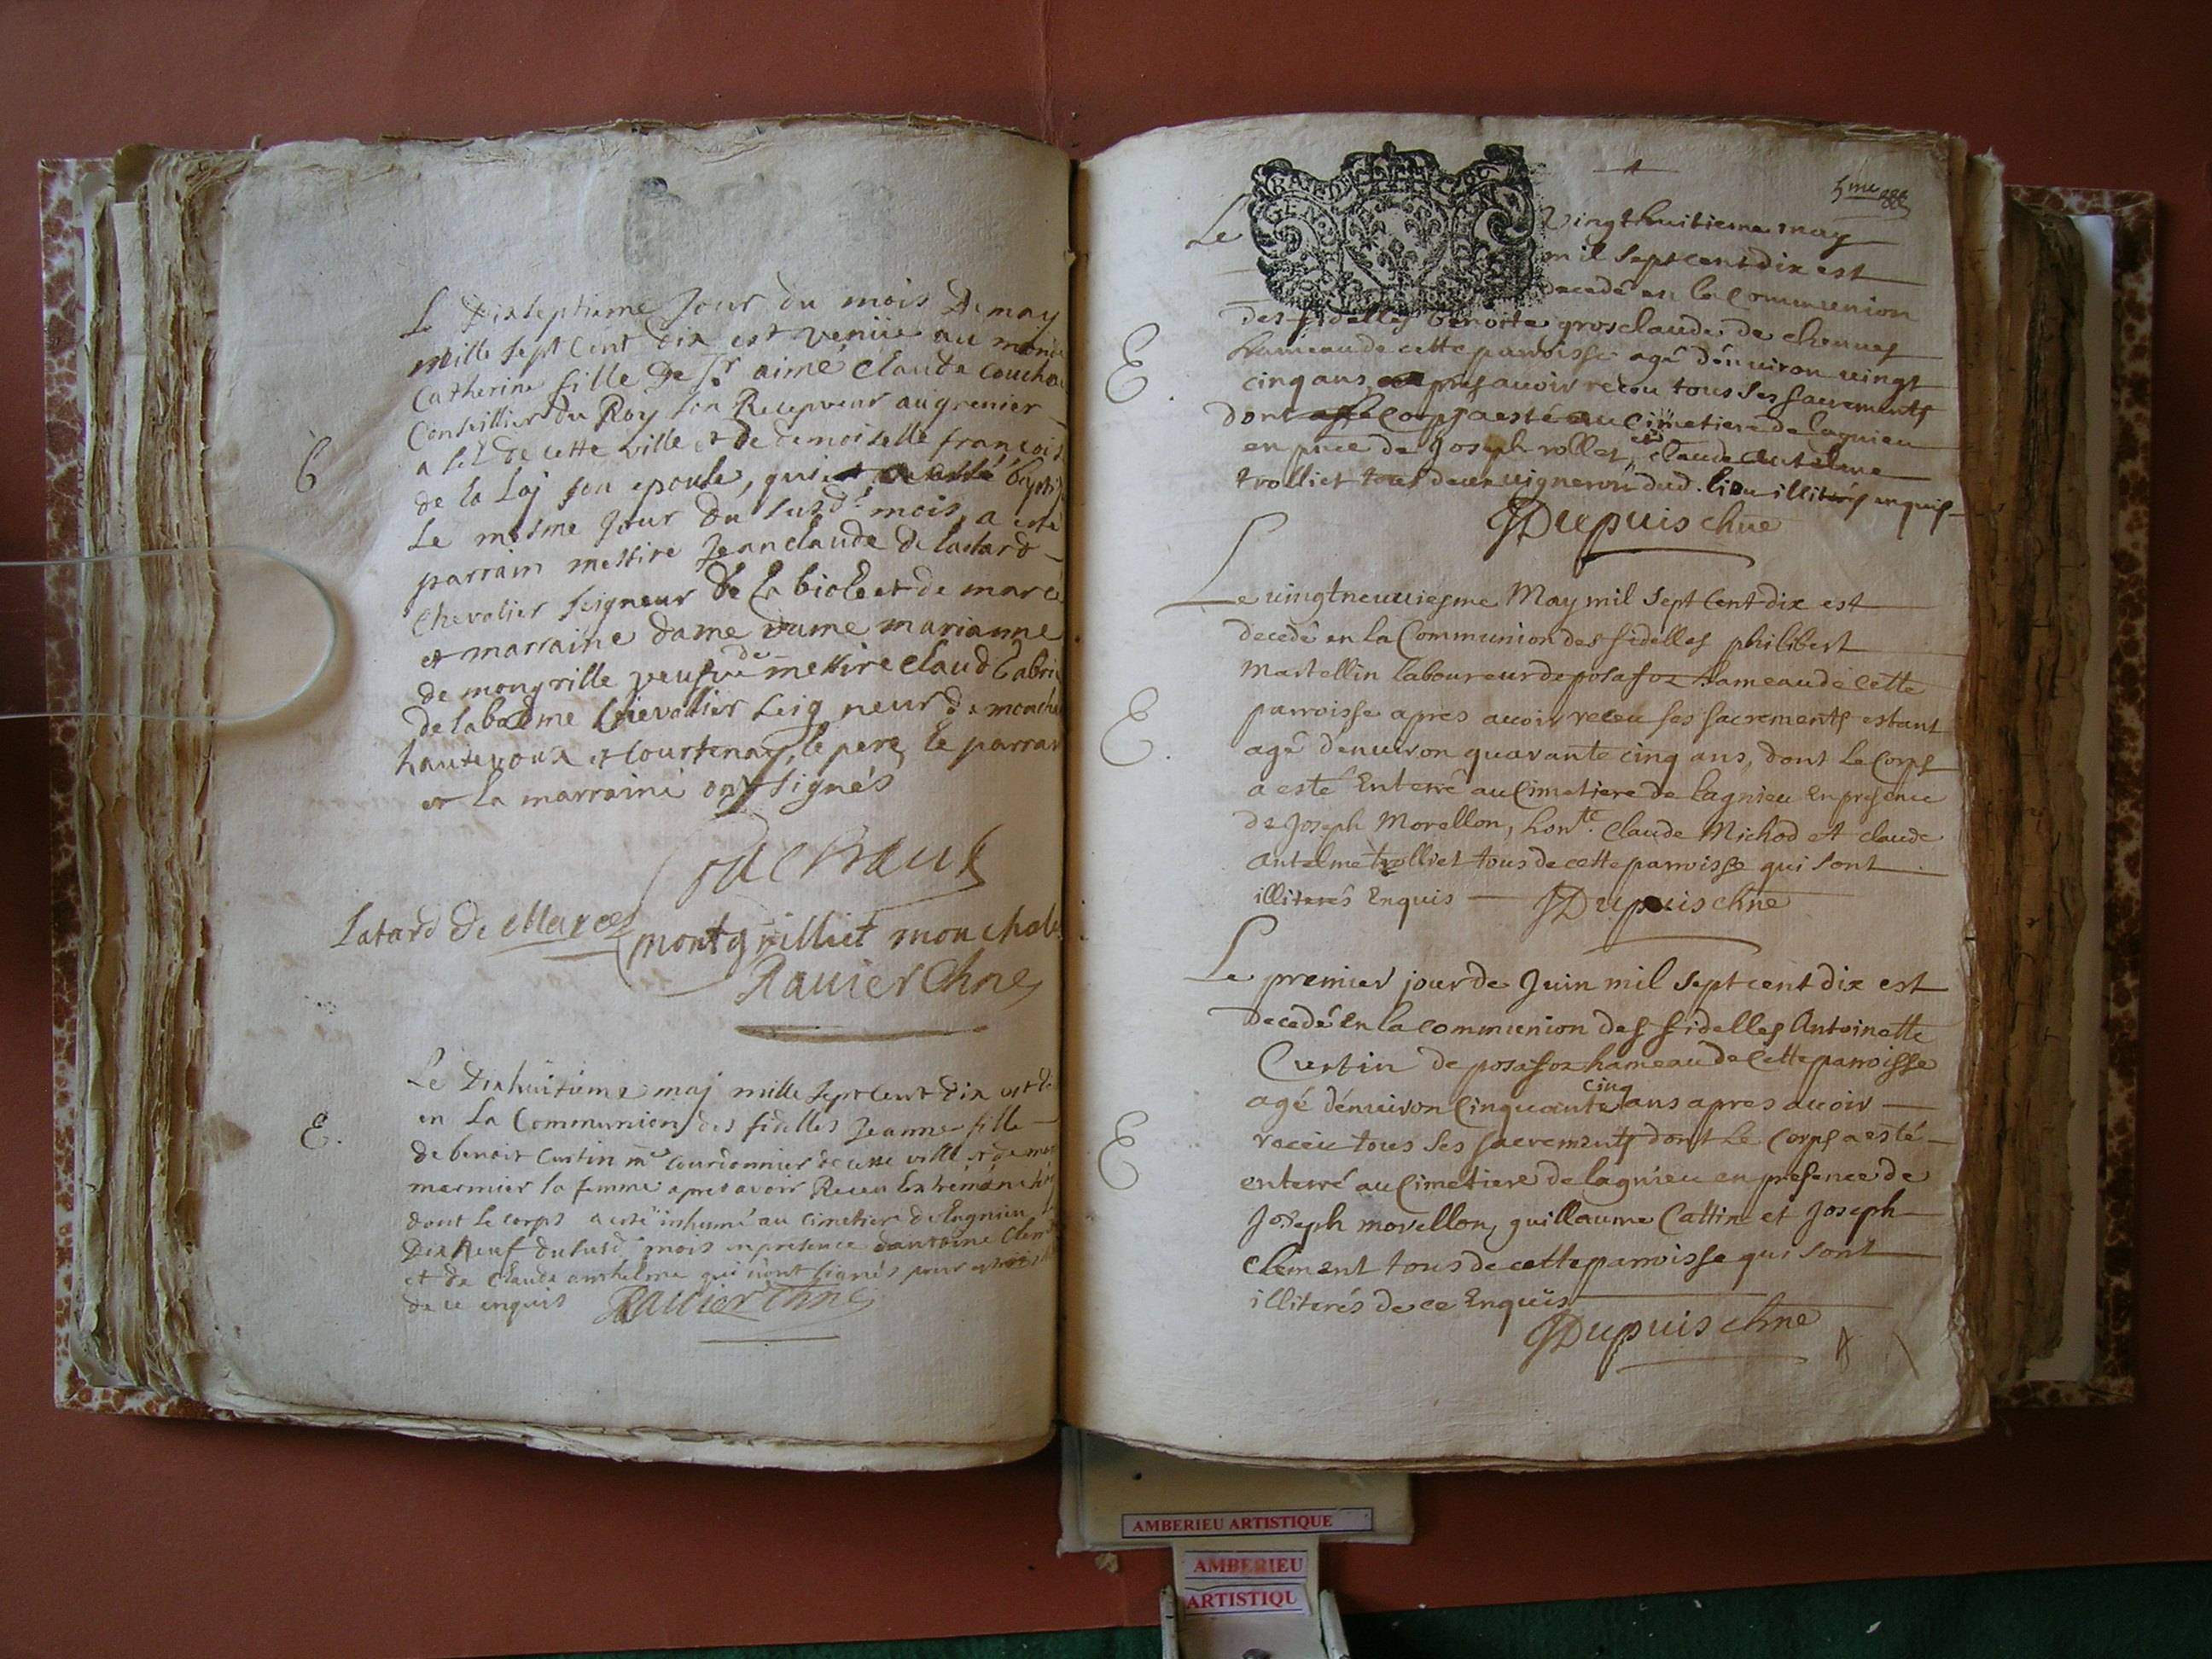 Le Dixseptieme Jour du mois De may
mille sept Cent Dix est venüe au monde
Catherine fille De Sr aimé Claude
Conseillier Du Roy son Recepveur au grenier
a sel de cette ville et de demoiselle
de la Loj son epouse, qui
Le mesme Jour Du susdt mois, a esté
parrain messire Jean claude De latard
chevalier seigneur De La biole et de
et marraine dame dame marianne
de mongrille veufve de messire Claud
chevallier seigneur De
et Courtenay, le pere, le
et la marraine ont signés
B
Latard De Marcel
montgrilliet
Ravier Chne
Le Dixhuitieme maj mille sept Cent Dix est
en La Communion des fidelles Jeanne fille
de benoit Curtin me Courdonnier de cette ville et de
marmier sa femme apres avoir Receu
dont le corps a esté inhumé au cimetier de Lagnieu
Dixneuf du susd. mois en presence dantoine
et de Claude anthelme qui n'ont signés pour
de ce enquis Ravier Chne
E.
GEN
5me
Le vingt huitieme may
mil sept cent dix est
decedé en la Communion
des fidelles benoite grosclaude de chenues
hameau de cette parroisse agé d'énuiron uingt
cinq ans apres auoir receu tous ses sacrements
dont corps a esté au Cimetiere de lagnieu
en pnce de Joseph rollet, et claude Antelme
trolliet tous deux uigneron dud. lieu illiterés enquis
JDupuis chne
E.
Le uingtneuuiesme May mil sept Cent dix est
decedé en la Communion des fidelles philibert
Martellin laboureur de posafoz hameau de cette
parroisse apres auoir receu ses sacrements estant
agé d'enuiron quarante cinq ans, dont le Corps
a esté Enterré au Cimetiere de lagnieu En presence
de Joseph Morellon, honte. Claude Michod et claude
antelme trolliet tous de cette parroisse qui sont
illiterés Enquis JDupuis chne
E.
Le premier jour de Juin mil sept cent dix est
decedé En la communion des fidelles Antoinette
Curtin de posafoz hameau de Cette parroisse
agé d'énuiron Cinquante cinq ans apres auoir
receu tous ses sacrements dont le Corps a esté
enterré au Cimetiere de lagnieu en presence de
Joseph morellon, guillaume Cattin et Joseph
Clement tous de cette parroisse qui sont
illiterés de ce Enquis
JDupuis chne
E
AMBERIEU ARTISTIQUE
AMBERIEU
ARTISTIQU